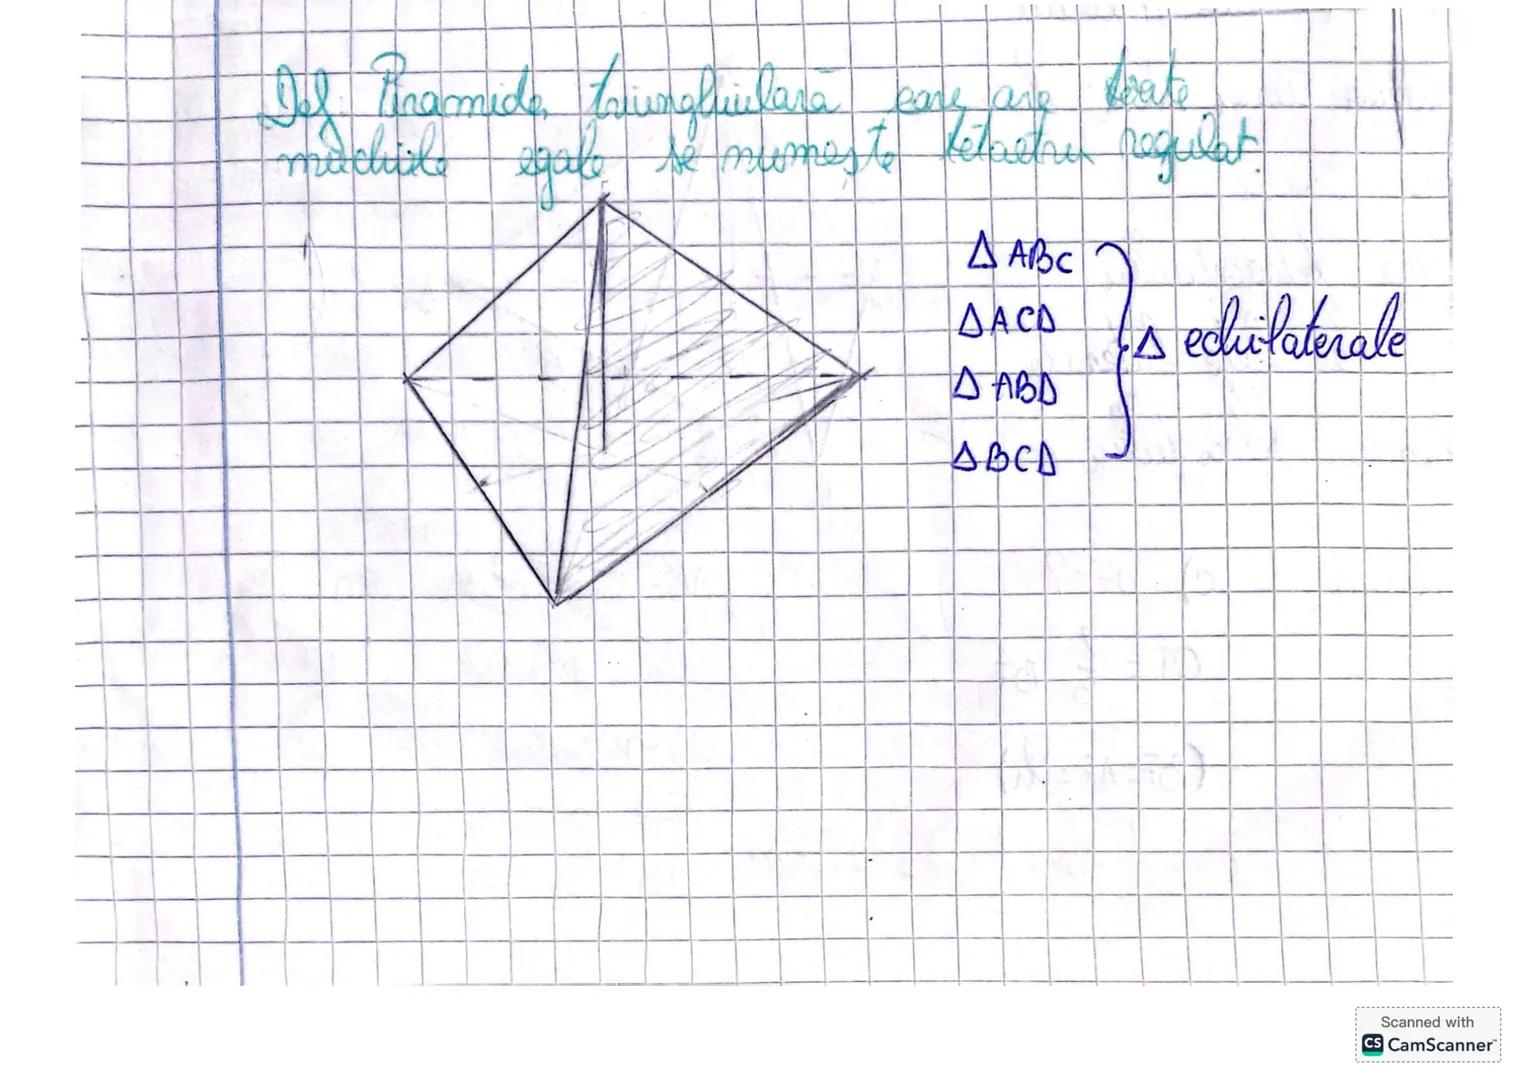 Def. Piramida triunghiulară care are toate
muchiile egale se numește tetraedru regulat.
Δ ABC
Δ ACD
Δ ABD
Δ BCD
Δ echilaterale
Scanned with
CS CamScanner